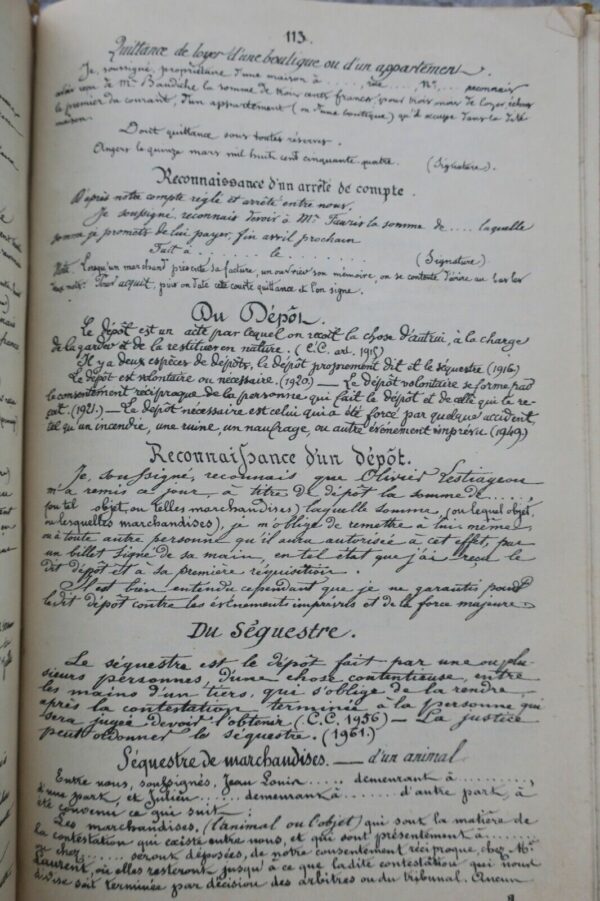 113.
Quittance de loyer d'une boutique ou d'un appartement.
Je, soussigné, propriétaire d'une maison à ....., rue ....., N°...., reconnais
avoir reçu de Mr Baudèche la somme de trois cents francs, pour trois mois de loyer échus
le premier du courant, d'un appartement (ou d'une boutique) qu'il occupe dans la dite
maison.
Dont quittance sous toutes réserves.
Angers le quinze mars mil huit cent cinquante quatre. (Signature).
Reconnaissance d'un arrêté de compte.
D'après notre compte réglé et arrêté entre nous.
Je soussigné, reconnais devoir à Mr Tauris la somme de .... laquelle
somme je promets de lui payer, fin avril prochain
Fait à ........ le ........ (Signature)
Note. Lorsqu'un marchand présente sa facture, un ouvrier son mémoire, on se contente d'écrire au bas les
deux mots: Pour acquit, puis on date cette courte quittance et l'on signe.
Du Dépôt.
Le dépôt est un acte par lequel on reçoit la chose d'autrui, à la charge
de la garder et de la restituer en nature. (C.C. art. 1915)
Il y a deux espèces de dépôts, le dépôt proprement dit et le séquestre (1916)
Le dépôt est volontaire ou nécessaire. (1920.) — Le dépôt volontaire se forme par
le consentement réciproque de la personne qui fait le dépôt et de celle qui le re-
çoit. (1921.) — Le dépôt nécessaire est celui qui a été forcé par quelque accident,
tel qu'un incendie, une ruine, un naufrage ou autre événement imprévu (1949)
Reconnaissance d'un dépôt.
Je, soussigné, reconnais que Olivier Lestiageon
m'a remis ce jour, à titre de dépôt la somme de ......,
(ou tel objet, ou telles marchandises) laquelle somme, (ou lequel objet,
ou lesquelles marchandises), je m'oblige de remettre à lui même,
ou à toute autre personne qu'il aura autorisée à cet effet, par
un billet signé de sa main, en tel état que j'ai reçu le
dit dépôt et à sa première réquisition.
Il est bien entendu cependant que je ne garantis point
le dit dépôt contre les événements imprévus et de la force majeure
Du Séquestre.
Le séquestre est le dépôt fait par une ou plu-
sieurs personnes, d'une chose contentieuse, entre
les mains d'un tiers, qui s'oblige de la rendre,
après la contestation terminée à la personne qui
sera jugée devoir l'obtenir (C.C. 1956) — La justice
peut ordonner le séquestre. (1961.)
Séquestre de marchandises. — d'un animal
Entre nous, soussignés, Jean Louis ...... demeurant à ........,
d'une part, et Julien ...... demeurant à ....... d'autre part, à
été convenu ce qui suit:
Les marchandises, (l'animal ou l'objet) qui sont la matière de
la contestation qui existe entre nous, et qui sont présentement à .......
chez ...... seront déposées, de notre consentement réciproque, chez Mr
Laurent, où elles resteront jusqu'à ce que la dite contestation qui nous
divise soit terminée par décision des arbitres ou du tribunal. Aucun